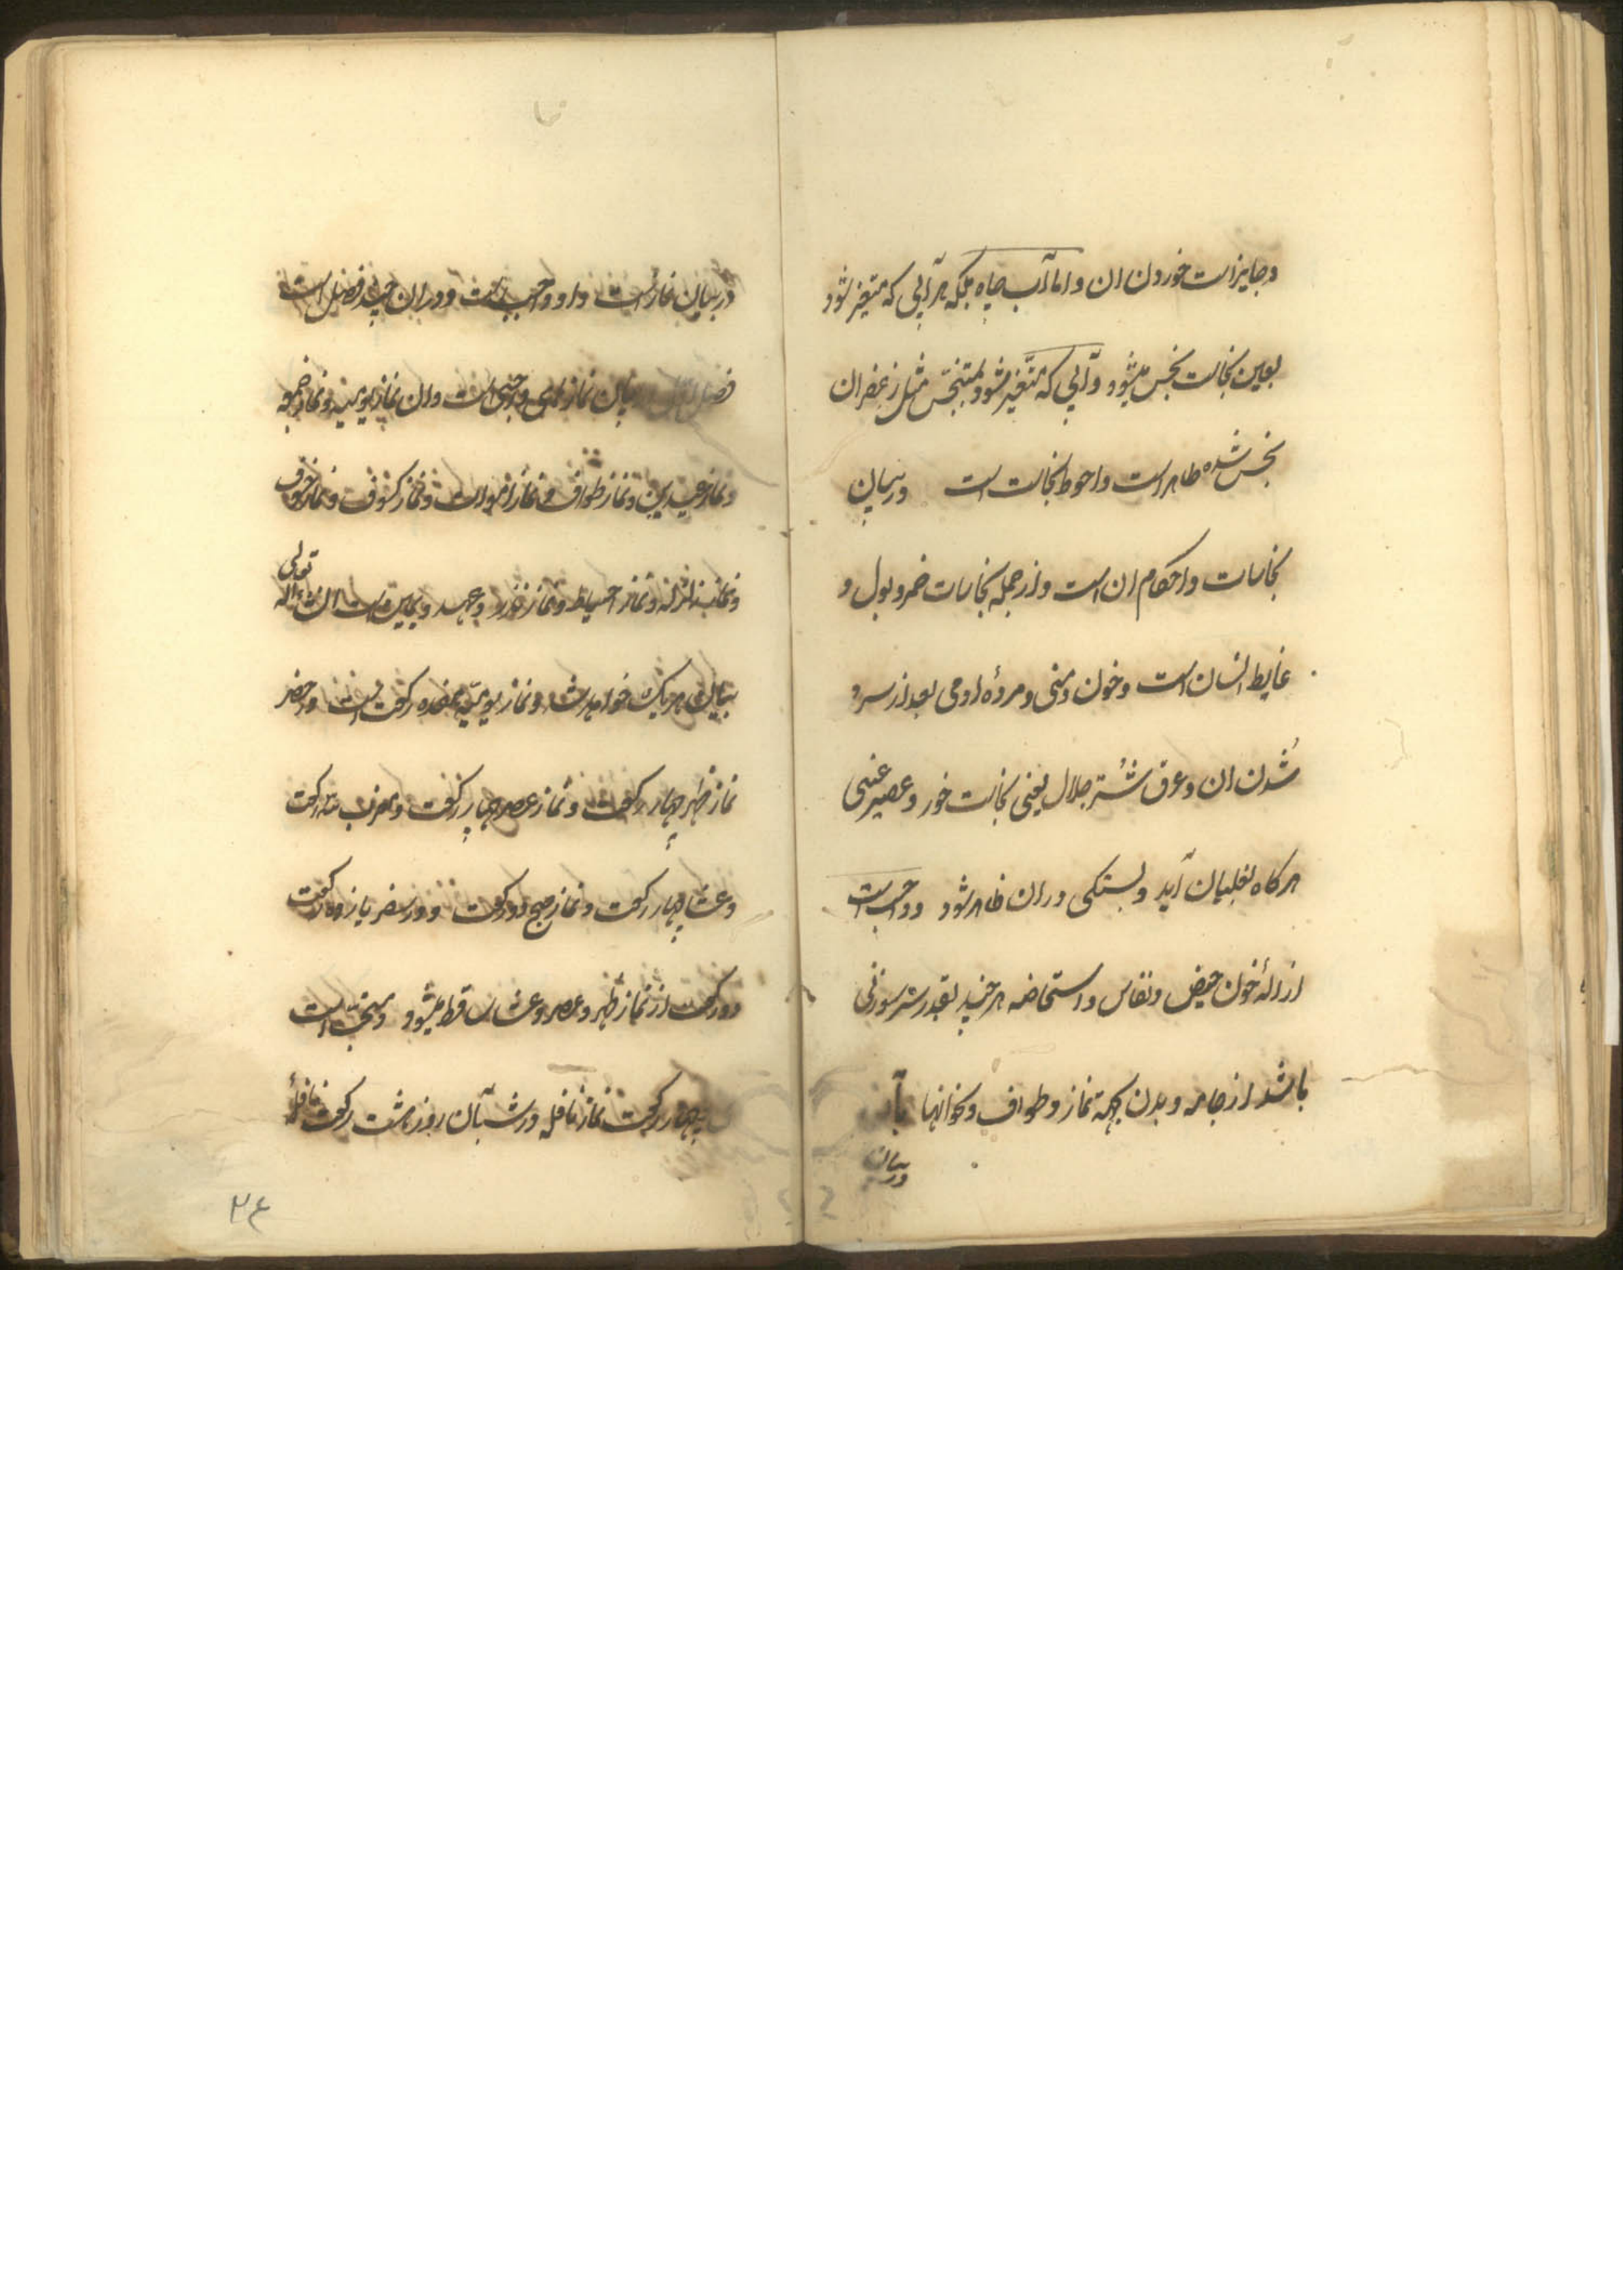 و جایز است خوردن ان و اما آب چاه بلکه هر آبی که متغیر شود
بعین نجاست نجس میشود و آبی که متغیر شود بمتنجس مثل زعفران
نجس شده طاهر است و احوط نجاست است در بیان
نجاسات و احکام ان است و از جمله نجاسات خمر و بول و
غایط انسان است و خون و منی و مردهٔ ادمی بعد از سرد
شدن ان و عرق شتر جلال یعنی نجاست خور و عصیر عنبی
هرکاه بغلیان آید و بستکی در ان ظاهر شود و واجب است
ازالهٔ خون حیض و نفاس و استحاضه هر چند بقدر سر سوزنی
باشد از جامه و بدن بجهة نماز و طواف و نحو انها بآب
در بیان
در بیان نماز است و او واجب است و در ان چند فصل است
فصل اول در بیان نمازهای واجبی است و ان نماز یومیه و نماز جمعه
و نماز عیدین و نماز طواف و نماز اموات و نماز کسوف و نماز خسوف
و نماز زلزله و نماز احتیاط و نماز نذر و عهد و یمین است انشاءالله تعالی
بیان هر یک خواهد شد و نماز یومیه هفده رکعت است در حضر
نماز ظهر چهار رکعت و نماز عصر چهار رکعت و مغرب سه رکعت
و عشا چهار رکعت و نماز صبح دو رکعت و در سفر یازده رکعت
دو رکعت از نماز ظهر و عصر و عشا ساقط میشود و سنت است
چهار رکعت نماز نافله در شب آن روز هشت رکعت نافلهٔ
۲۴